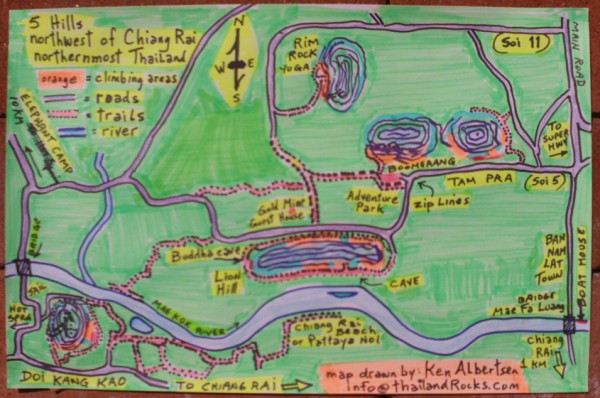 5 Hills
northwest of Chiang Rai
northernmost Thailand
orange = climbing areas
= roads
= trails
= river
N
W E
S
RIM
ROCK
YOGA
Soi 11
MAIN ROAD
ELEPHANT CAMP
10 KM
TO
SUPER
HWY
BOOMERANG
TAM PRA
Soi 5
zip Lines
Adventure
Park
Gold Mine
Guest House
BRIDGE
Buddha cave
Lion
Hill
CAVE
BAN
NAM
LAT
TOWN
BOAT HOUSE
BRIDGE
Mae Fa Luang
MAE KOK RIVER
HOT
SPRG
Chiang Rai
Beach
or Pattaya Noi
CHIANG
RAI
1 KM
DOI KANG KAO
TO CHIANG RAI
map drawn by: Ken Albertsen
info@thailandRocks.com